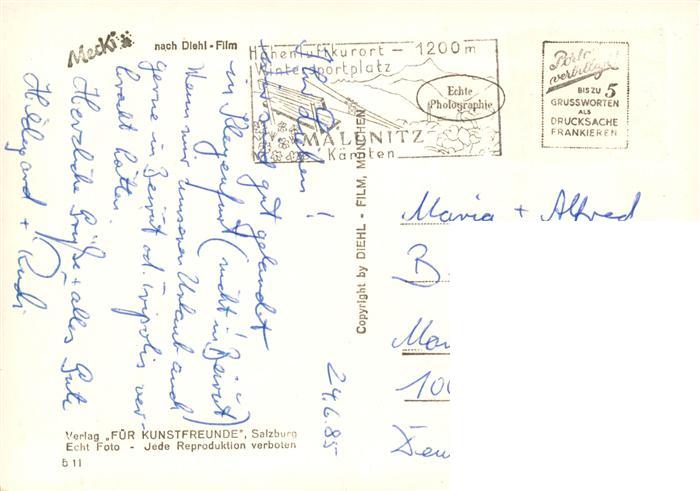 Mecki
nach Diehl-Film
Höhenluftkurort – 1200 m
Wintersportplatz
MALLNITZ
Kärnten
Echte
Photographie
Porto
verbilligt
BIS ZU 5
GRUSSWORTEN
ALS
DRUCKSACHE
FRANKIEREN
24.6.85
Ihr Lieben!
sind gut gelandet
in Klagenfurt (nicht in Beirut)
Wenn wir unseren Urlaub auch
gerne in Beirut od. Tripolis ver-
bracht hätten.
Herzliche Grüße + alles Gute
Hildegard + Rudi
Copyright by DIEHL - FILM, MÜNCHEN
Maria + Alfred
B
Mar
100
Verlag „FÜR KUNSTFREUNDE", Salzburg
Echt Foto - Jede Reproduktion verboten
b 11